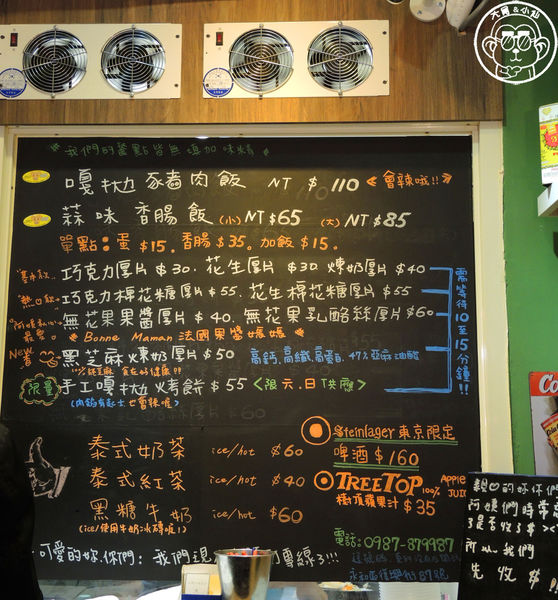 大胃&小純
"我們的餐點皆無添加味精"
嘎拋豬肉飯 NT $110 <會辣哦!!>
蒜味香腸飯 (小) NT $65 (大) NT $85
單點:蛋 $15. 香腸 $35. 加飯 $15.
巧克力厚片 $30. 花生厚片 $30. 煉奶厚片 $40
巧克力棉花糖厚片 $55. 花生棉花糖厚片 $55
無花果果醬厚片 $40. 無花果乳酪絲厚片 $60
" Bonne Maman 法國果醬媽媽 "
New 黑芝麻煉奶厚片 $50 高鈣.高鐵.高蛋白. 47% 亞麻油酸
限量 手工嘎拋烤餅 $55 <限六.日供應>
(內餡有起士也會辣喔)
需等待10至15分鐘!!
泰式奶茶 ice/hot $60
泰式紅茶 ice/hot $40
黑糖牛奶 ice/hot $60
(ice/使用牛奶冰磚喔!)
Steinlager 東京限定
啤酒 $160
TREETOP 100% APPLE JUI
樹頂蘋果汁 $35
電話:0987-879987
可愛的妳.你們: 我們現
專線了!!!
親
的妳你們
所以.我們
先收 $